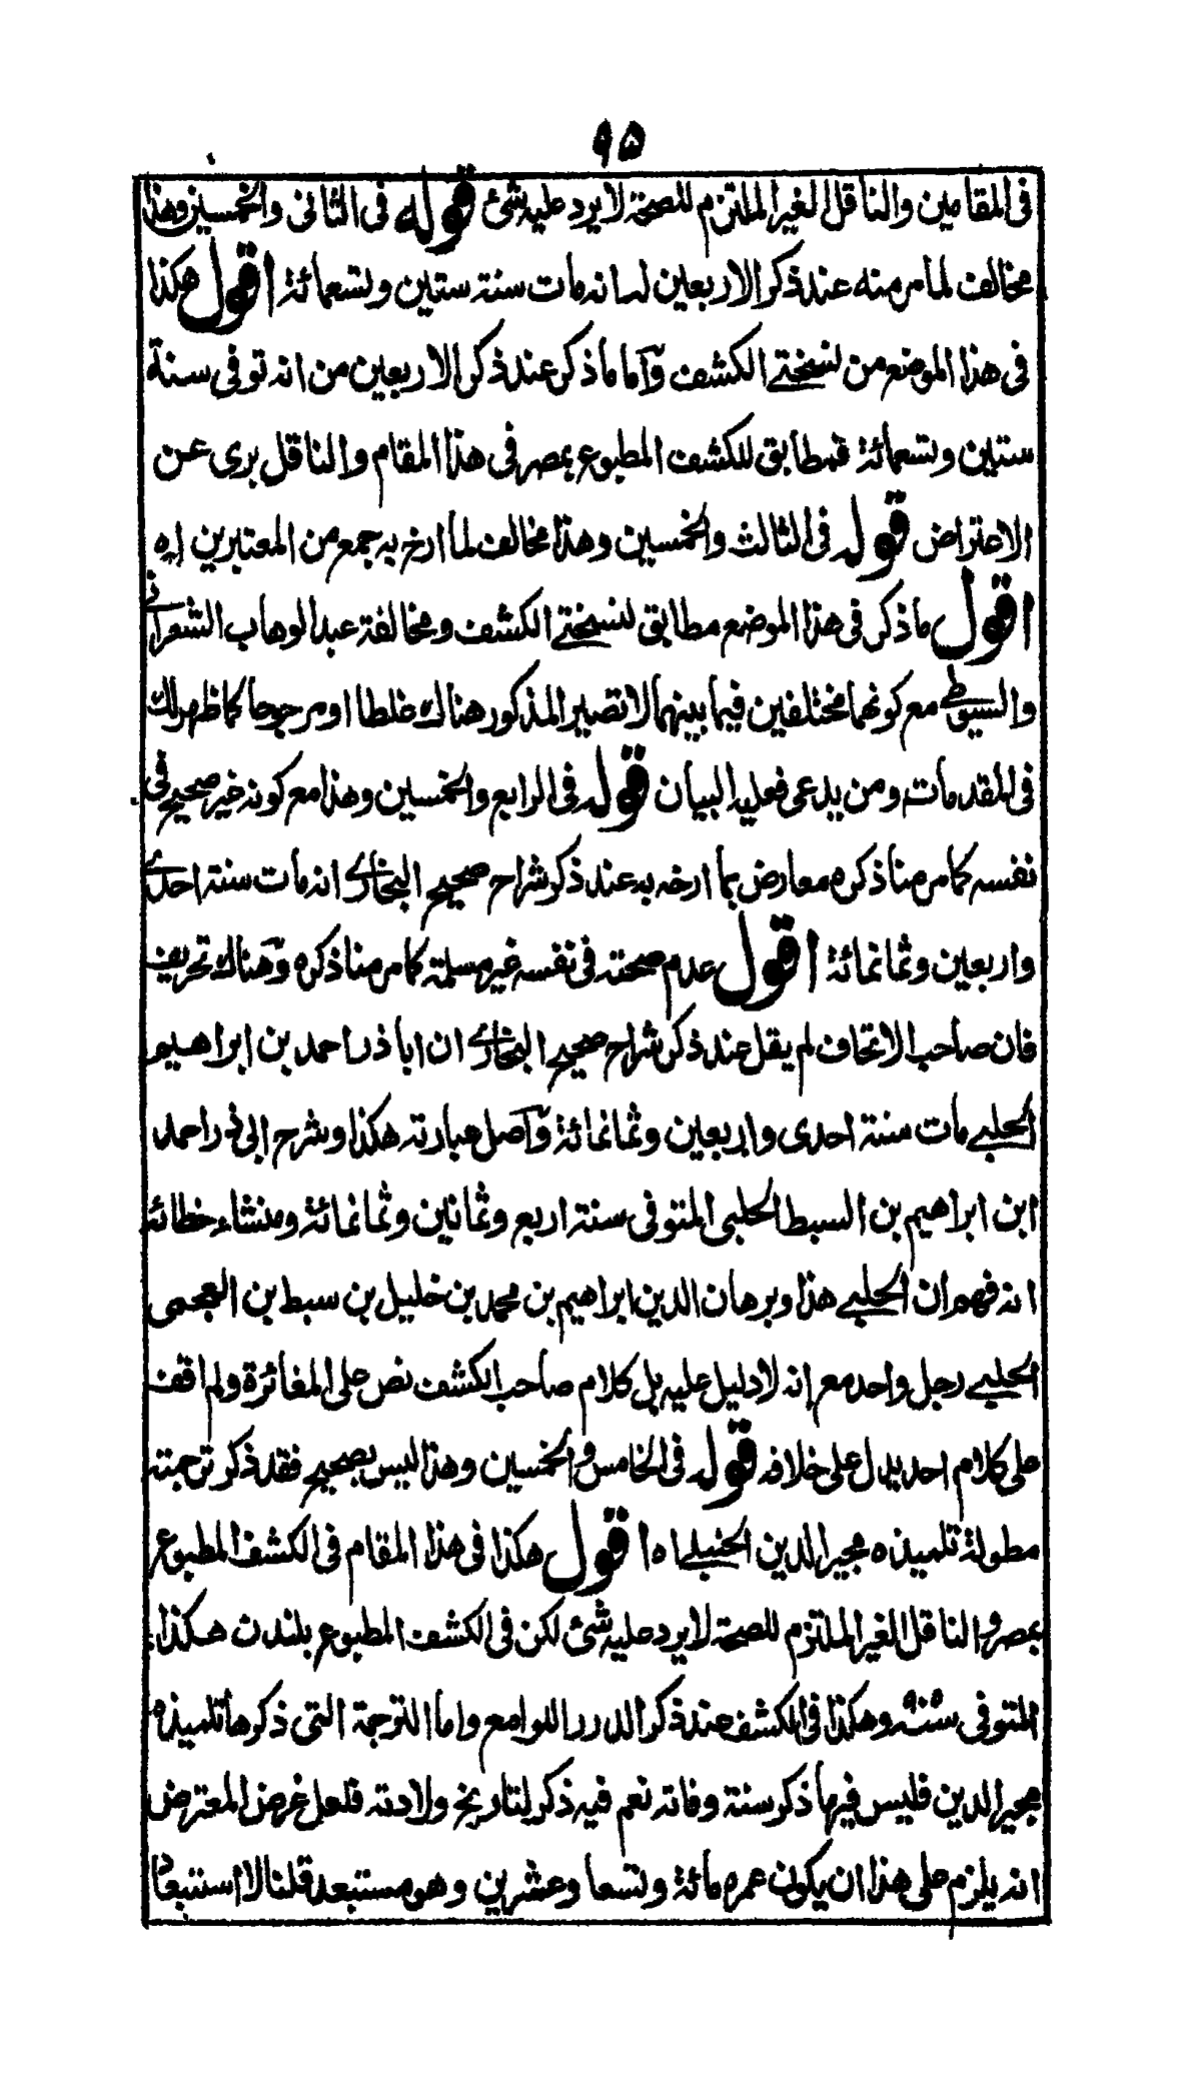 ٩٥
فى المقامين والناقل الغير الملتزم للصحة لا يرد عليه شئ قوله فى الثانى والخمسين وهذا
مخالف لما مر منه عند ذكر الاربعين له انه مات سنة ستين وتسعمائة اقول هكذا
فى هذا الموضع من نسختے الكشف وآما ما ذكر عند ذكر الاربعين من انه توفى سنة
ستين وتسعمائة فمطابق للكشف المطبوع بمصر فى هذا المقام والناقل برى عن
الاعتراض قوله فى الثالث والخمسين وهذا مخالف لما ارخ به جمع من المعتبرين اه
اقول ما ذكر فى هذا الموضع مطابق لنسختے الكشف ومخالفة عبد الوهاب الشعرانے
والسيوطے مع كونهما مختلفين فيما بينهما لا تصير المذكور هناك غلطا او مرجوحا كما ظهر لك
فى المقدمات ومن يدعى فعليه البيان قوله فى الرابع والخمسين وهذا مع كونه غير صحيح فى
نفسه كما مر منا ذكره معارض بما ارخه به عند ذكر شراح صحيح البخارے انه مات سنة احدے
واربعين وثمانمائة اقول عدم صحته فى نفسه غير مسلمة كما مر منا ذكره وهناك تحريف
فان صاحب الاتحاف لم يقل عند ذكر شراح صحيح البخارے ان ابا ذر احمد بن ابراهيم
الحلبے مات سنة احدى واربعين وثمانمائة وآصل عبارته هكذا وشرح ابى ذر احمد
ابن ابراهيم بن السبط الحلبى المتوفى سنة اربع وثمانين وثمانمائة ومنشاء خطائه
انه فهم ان الحلبے هذا وبرهان الدين ابراهيم بن محمد بن خليل بن سبط بن العجمى
الحلبے رجل واحد مع انه لا دليل عليه بل كلام صاحب الكشف نص على المغائرة ولم اقف
على كلام احد يدل على خلافه قوله فى الخامس والخمسين وهذا ليس بصحيح فقد ذكر ترجمته
مطولة تلميذه مجير الدين الحنبلے اه اقول هكذا فى هذا المقام فى الكشف المطبوع
بمصر والناقل الغير الملتزم للصحة لا يرد عليه شئ لكن فى الكشف المطبوع بلندن هكذا
المتوفى وهكذا فى الكشف عند ذكر الدرر اللوامع واما الترجمة التى ذكرها تلميذه
مجير الدين فليس فيها ذكر سنة وفاته نعم فيه ذكر لتاريخ ولادته فلعل غرض المعترض
انه يلزم على هذا ان يكون عمره مائة وتسعا وعشرين وهو مستبعد قلنا لا استبعاد